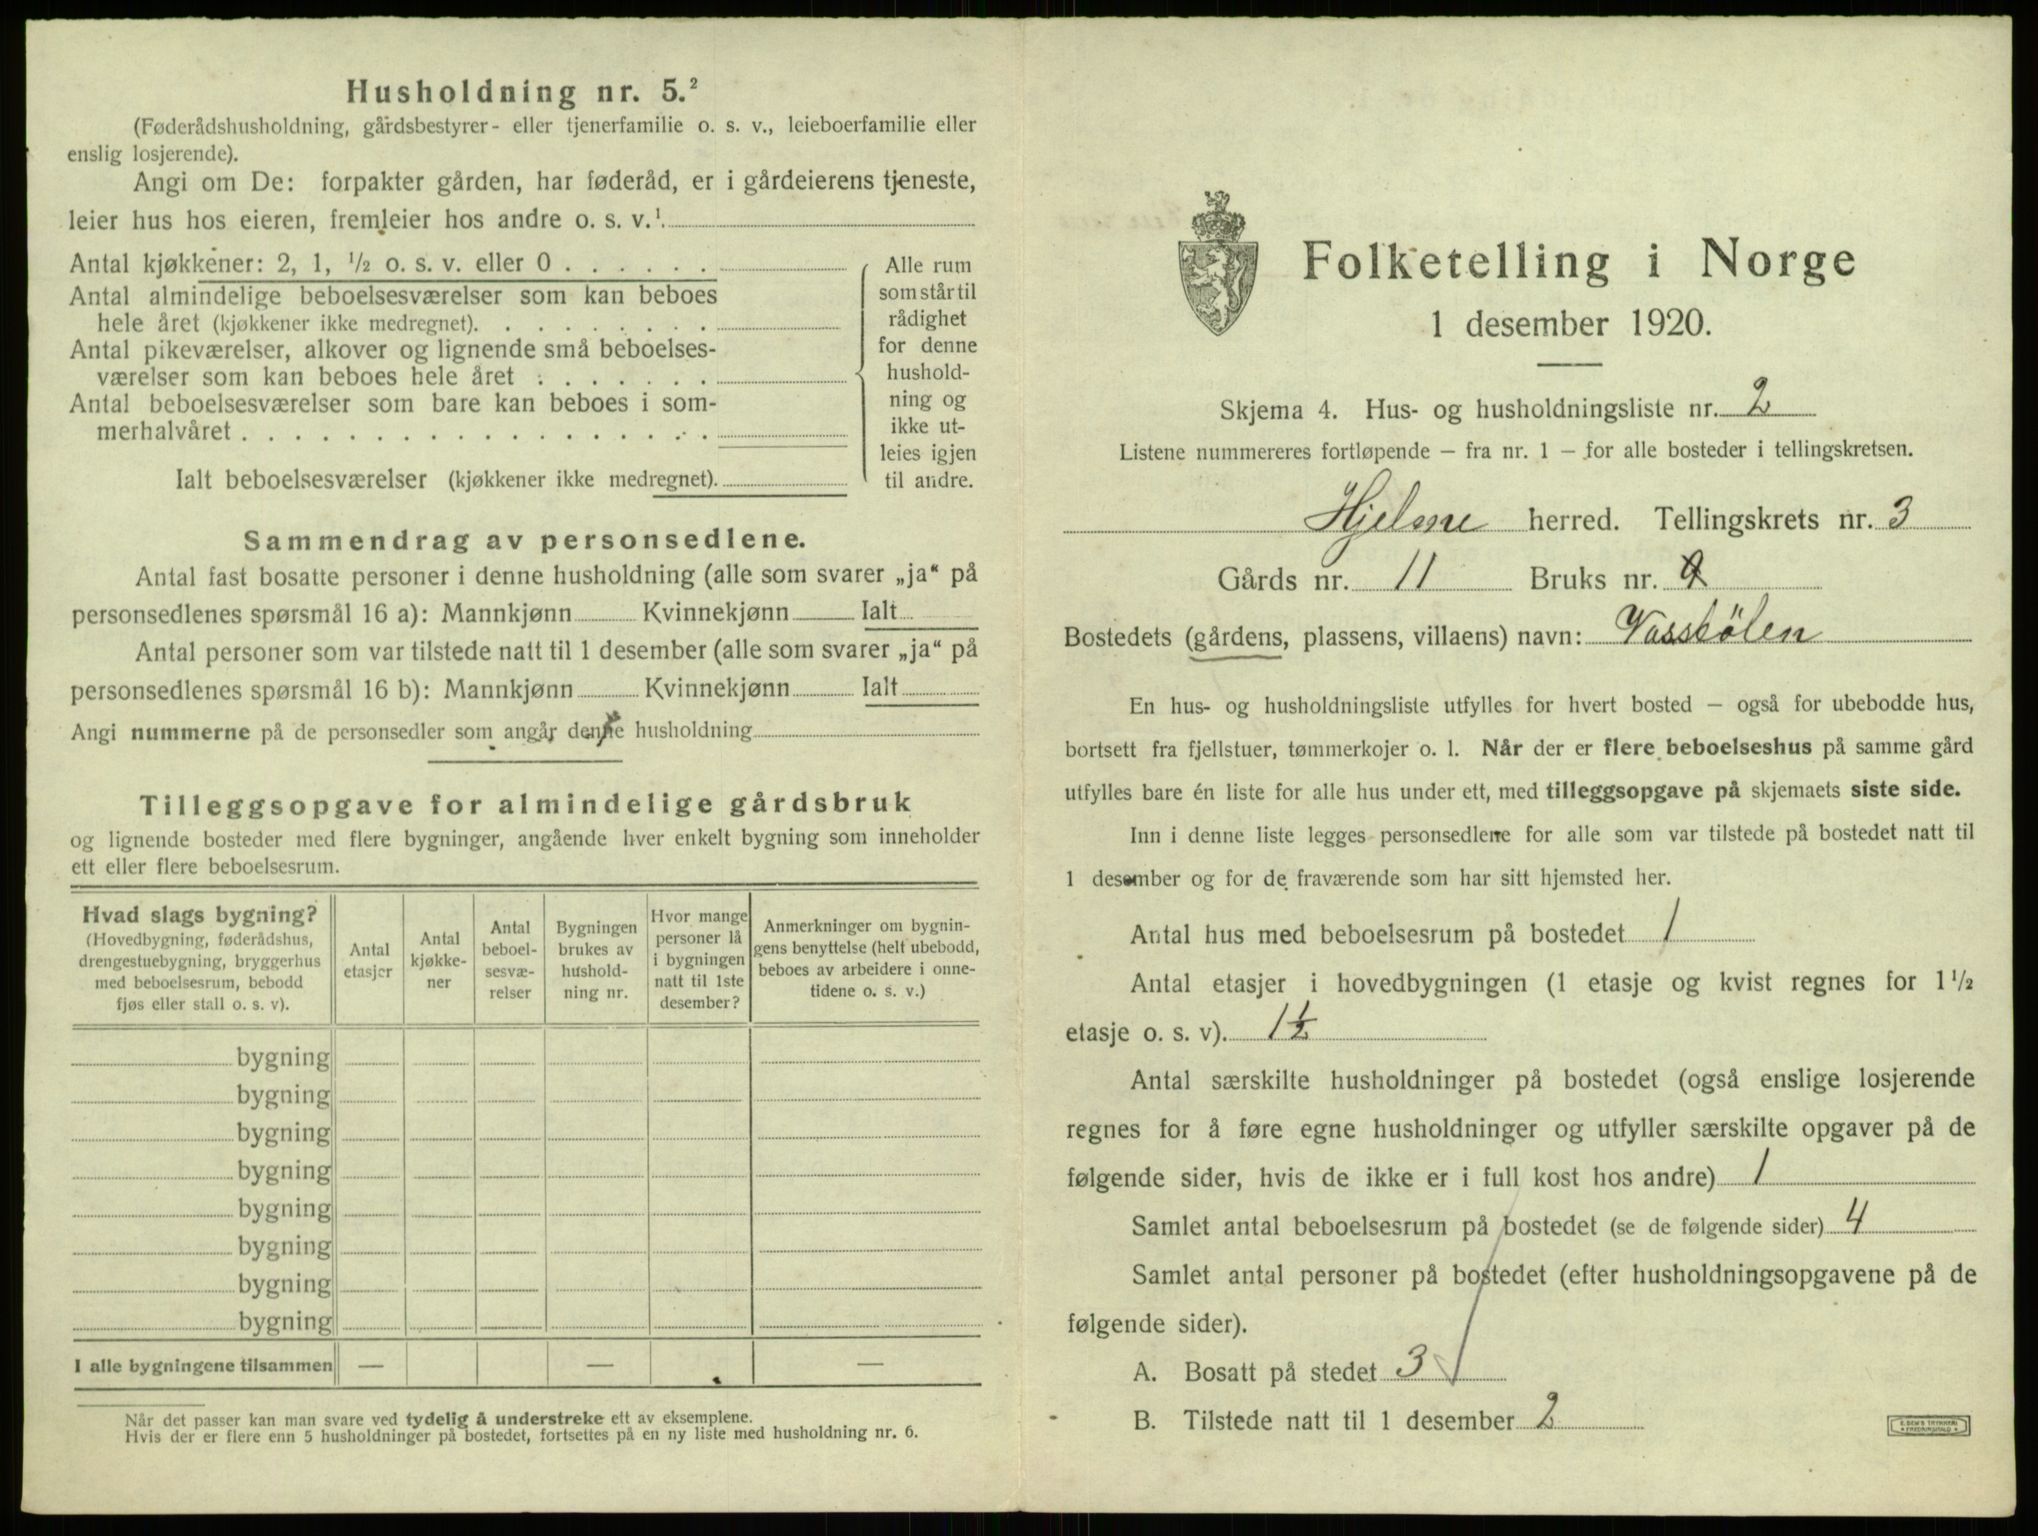 Husholdning nr. 5.²
(Føderådshusholdning, gårdsbestyrer- eller tjenerfamilie o. s. v., leieboerfamilie eller
enslig losjerende).
Angi om De: forpakter gården, har føderåd, er i gårdeierens tjeneste,
leier hus hos eieren, fremleier hos andre o. s. v.¹
Antal kjøkkener: 2, 1, ½ o. s. v. eller 0
Antal almindelige beboelsesværelser som kan beboes
hele året (kjøkkener ikke medregnet).
Antal pikeværelser, alkover og lignende små beboelses-
værelser som kan beboes hele året
Antal beboelsesværelser som bare kan beboes i som-
merhalvåret
Ialt beboelsesværelser (kjøkkener ikke medregnet).
Alle rum
som står til
rådighet
for denne
hushold-
ning og
ikke ut-
leies igjen
til andre.
Sammendrag av personsedlene.
Antal fast bosatte personer i denne husholdning (alle som svarer „ja“ på
personsedlenes spørsmål 16 a): Mannkjønn Kvinnekjønn Ialt
Antal personer som var tilstede natt til 1 desember (alle som svarer „ja“ på
personsedlenes spørsmål 16 b): Mannkjønn Kvinnekjønn Ialt
Angi nummerne på de personsedler som angår denne husholdning
Tilleggsopgave for almindelige gårdsbruk
og lignende bosteder med flere bygninger, angående hver enkelt bygning som inneholder
ett eller flere beboelsesrum.
Hvad slags bygning?
(Hovedbygning, føderådshus,
drengestuebygning, bryggerhus
med beboelsesrum, bebodd
fjøs eller stall o. s. v).
Antal
etasjer
Antal
kjøkke-
ner
Antal
beboel-
sesvæ-
relser
Bygningen
brukes av
hushold-
ning nr.
Hvor mange
personer lå
i bygningen
natt til 1ste
desember?
Anmerkninger om bygnin-
gens benyttelse (helt ubebodd,
beboes av arbeidere i onne-
tidene o. s. v.)
bygning
bygning
bygning
bygning
bygning
bygning
bygning
bygning
I alle bygningene tilsammen — — —
Når det passer kan man svare ved tydelig å understreke ett av eksemplene.
Hvis der er flere enn 5 husholdninger på bostedet, fortsettes på en ny liste med husholdning nr. 6.
Folketelling i Norge
1 desember 1920.
Skjema 4. Hus- og husholdningsliste nr. 2
Listene nummereres fortløpende — fra nr. 1 — for alle bosteder i tellingskretsen.
Hjelme herred. Tellingskrets nr. 3
Gårds nr. 11 Bruks nr. 9
Bostedets (gårdens, plassens, villaens) navn: Vasskölen
En hus- og husholdningsliste utfylles for hvert bosted — også for ubebodde hus,
bortsett fra fjellstuer, tømmerkojer o. l. Når der er flere beboelseshus på samme gård
utfylles bare én liste for alle hus under ett, med tilleggsopgave på skjemaets siste side.
Inn i denne liste legges personsedlene for alle som var tilstede på bostedet natt til
1 desember og for de fraværende som har sitt hjemsted her.
Antal hus med beboelsesrum på bostedet 1
Antal etasjer i hovedbygningen (1 etasje og kvist regnes for 1½
etasje o. s. v). 1½
Antal særskilte husholdninger på bostedet (også enslige losjerende
regnes for å føre egne husholdninger og utfyller særskilte opgaver på de
følgende sider, hvis de ikke er i full kost hos andre) 1
Samlet antal beboelsesrum på bostedet (se de følgende sider) 4
Samlet antal personer på bostedet (efter husholdningsopgavene på de
følgende sider).
A. Bosatt på stedet 3
B. Tilstede natt til 1 desember 2